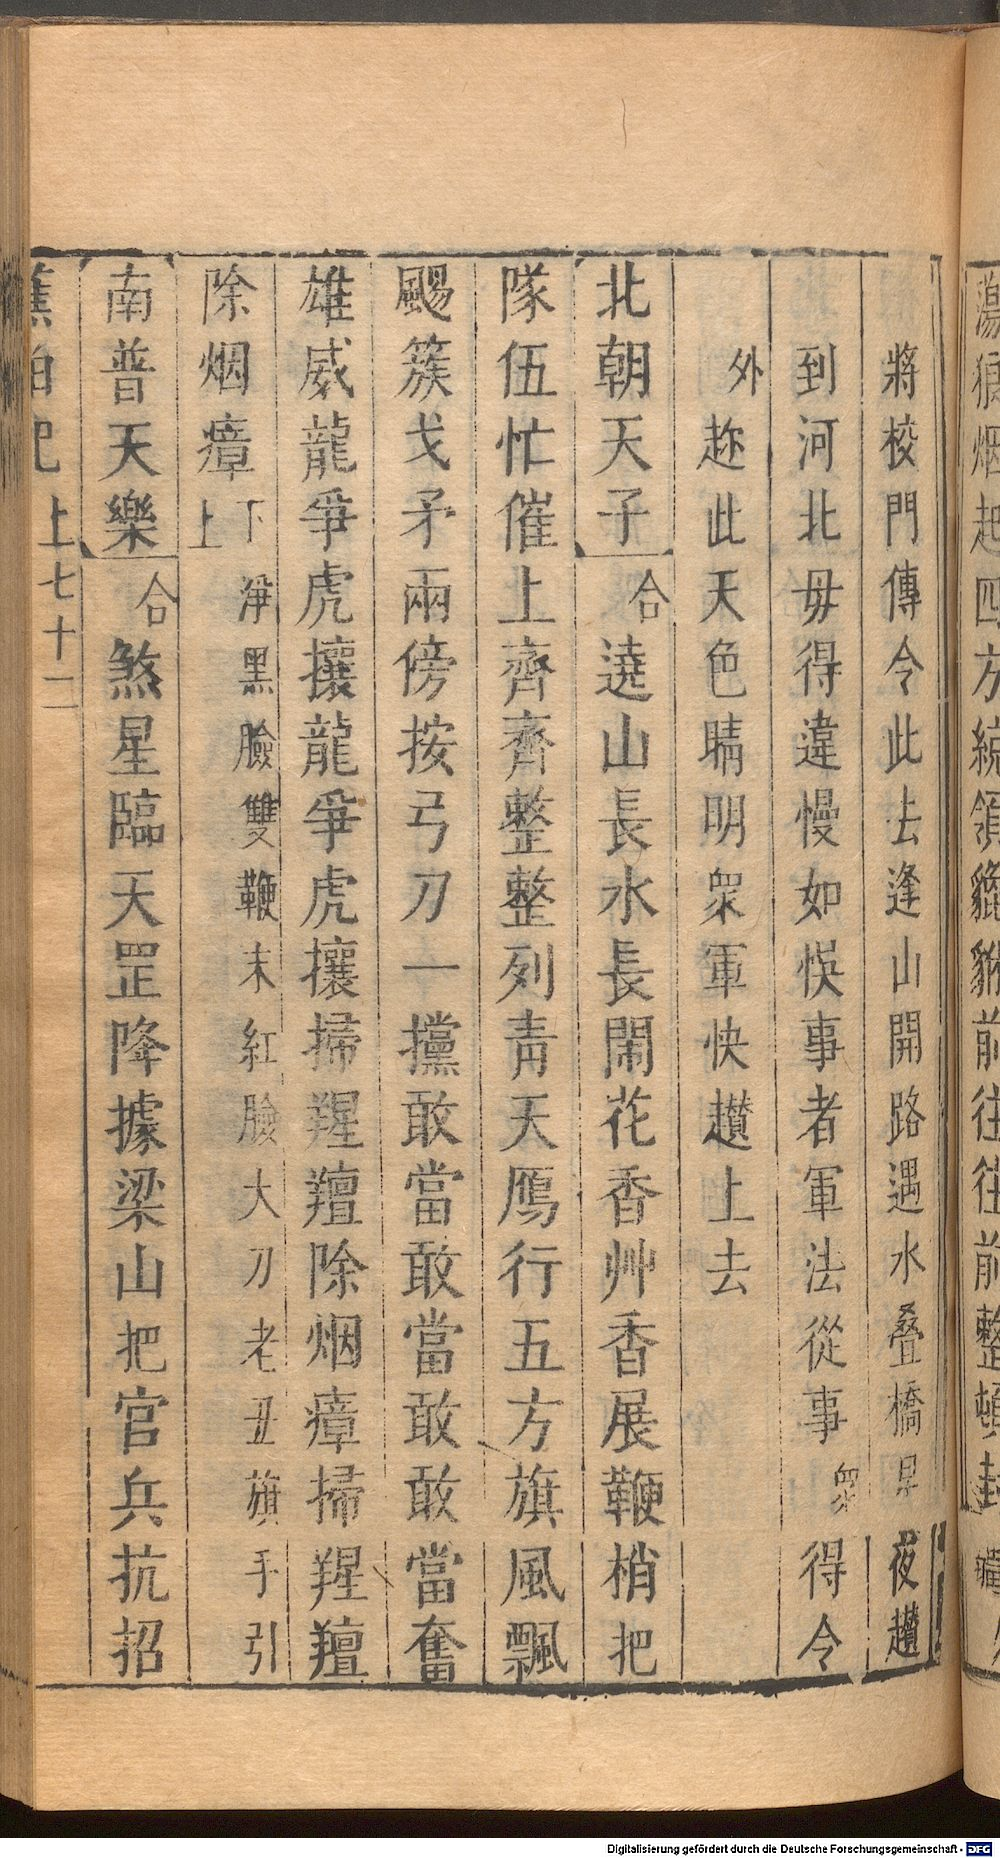 蕩狼烟起四方統領貔貅前往往前整頓封疆
將校門傳令此去逢山開路遇水叠橋早夜趲
到河北毋得違慢如悞事者軍法從事眾得令
外趂此天色晴明眾軍快趲上去
北朝天子合遶山長水長閙花香艸香展鞭梢把
隊伍忙催上齊齊整整列青天鴈行五方旗風飄
颺簇戈矛兩傍按弓刀一攩敢當敢當敢敢當奮
雄威龍爭虎攘龍爭虎攘掃羶羶除烟瘴掃羶羶
除烟瘴下上淨黑臉雙鞭末紅臉大刀老丑旗手引
南普天樂合煞星臨天罡降據梁山把官兵抗招
蕉帕記上七十二
Digitalisierung gefördert durch die Deutsche Forschungsgemeinschaft - DFG